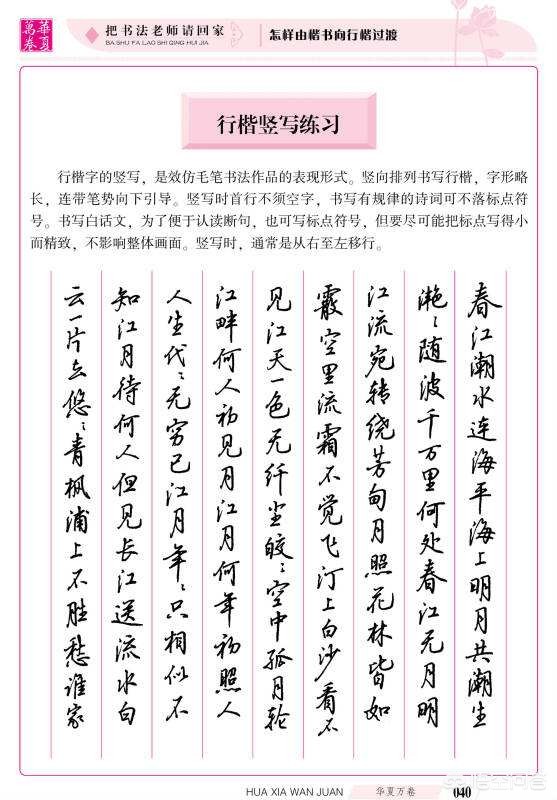 華夏萬卷
把书法老师请回家
BA SHU FA LAO SHI QING HUI JIA
怎样由楷书向行楷过渡
行楷竖写练习
行楷字的竖写，是效仿毛笔书法作品的表现形式。竖向排列书写行楷，字形略
长，连带笔势向下引导。竖写时首行不须空字，书写有规律的诗词可不落标点符
号。书写白话文，为了便于认读断句，也可写标点符号，但要尽可能把标点写得小
而精致，不影响整体画面。竖写时，通常是从右至左移行。
春江潮水连海平海上明月共潮生
滟〻随波千万里何处春江无月明
江流宛转绕芳甸月照花林皆如
霰空里流霜不觉飞汀上白沙看不
见江天一色无纤尘皎〻空中孤月轮
江畔何人初见月江月何年初照人
人生代〻无穷已江月年〻只相似不
知江月待何人但见长江送流水白
云一片去悠〻青枫浦上不胜愁谁家
HUA XIA WAN JUAN
华夏万卷
040